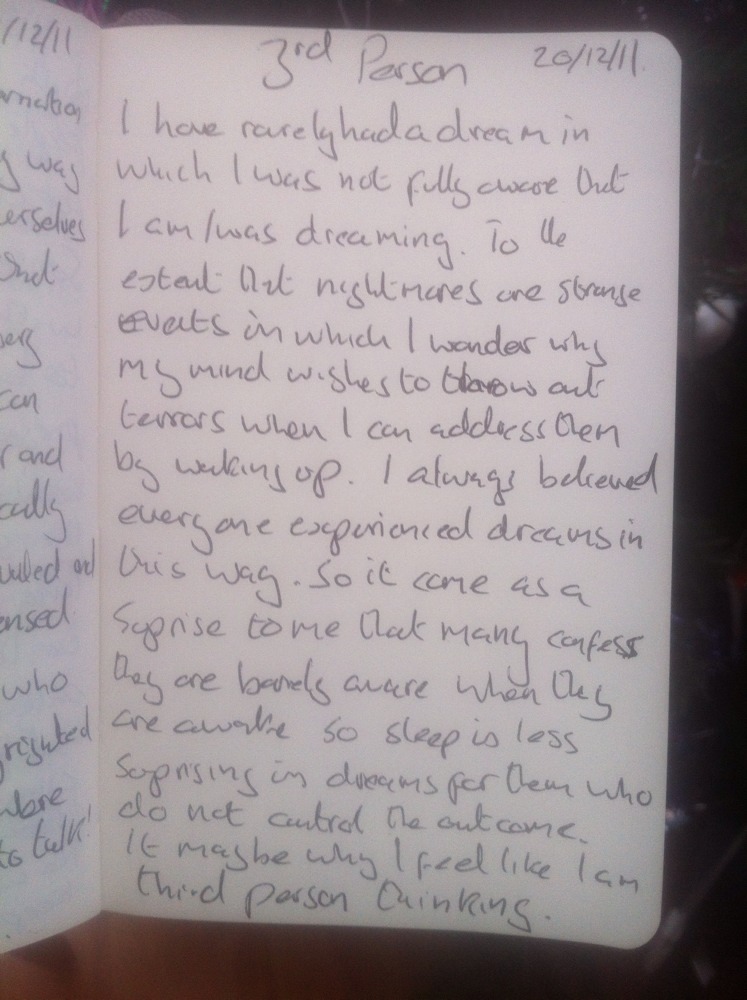 /12/11
rmation
y way
erselves
can
r and
cally
ensed
who
to talk!
3rd Person 20/12/11.
I have rarely had a dream in
which I was not fully aware that
I am/was dreaming. To the
extent that nightmares are strange
events in which I wonder why
my mind wishes to throw out
terrors when I can address them
by waking up. I always believed
everyone experienced dreams in
this way. So it came as a
Suprise to me that many confess
they are barely aware when they
are awake so sleep is less
Suprising in dreams for them who
do not control the outcome.
It maybe why I feel like I am
third person thinking.